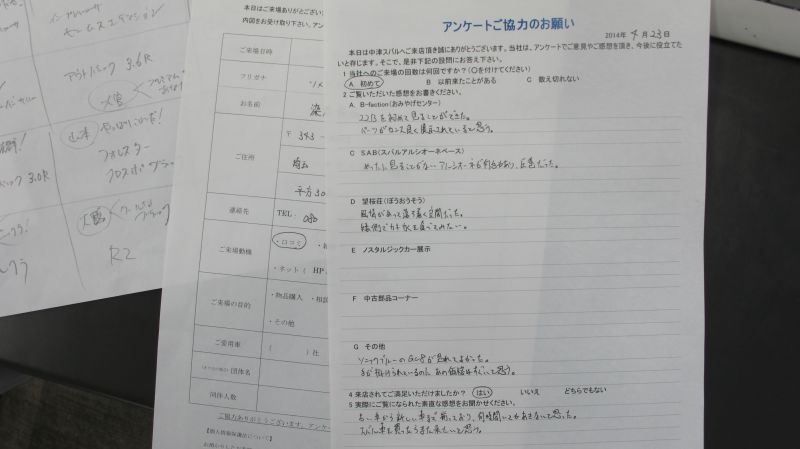 アウトバック 3.6R
フォレスター
クロスポ
R2
3.0R
本日はご来場ありがとうござい
内図をお受け取り下さい。アン
ご来場日時
フリガナ
お名前
ご住所
〒 343-
埼玉
連絡先
TEL: 080
ご来場動機
・口コミ
・ネット( HP
ご来場の目的
・物品購入 ・相談
・その他
ご愛用車
( )社
団体名
同伴人数
ご協力ありがとうございます。アンケ
【個人情報保護法について】
アンケートご協力のお願い
2014年 4月23日
本日は中津スバルへご来店頂き誠にありがとうございます。当社は、アンケートでご意見やご感想を頂き、今後に役立てた
いと存じます。そこで、是非下記の設問にお答え下さい。
1 当社へのご来場の回数は何回ですか?(〇を付けてください)
A 初めて B 以前来たことがある C 数え切れない
2 ご覧いただいた感想をお書きください。
A. B-faction(おみやげセンター)
22Bを初めて見ることができた。
パーツがセンス良く展示されていると思う。
C SAB(スバルアルシオーネベース)
めったに見ることがないアルシオーネが何台もあり、圧巻だった。
D 望桜荘(ぼうおうそう)
風情があって落ち着く空間だった。
縁側でカキ氷を食べてみたい。
E ノスタルジックカー展示
F 中古部品コーナー
G その他
ソニックブルーのGC8が見れてよかった。
手が掛けられているのに、あの価格はすごいと思う。
4 来店されてご満足いただけましたか? はい いいえ どちらでもない
5 実際にご覧になられた素直な感想をお聞かせください。
古い車から新しい車まで揃っており、何時間いてもあきないと思った。
スバル車を買ったらまた来たいと思う。